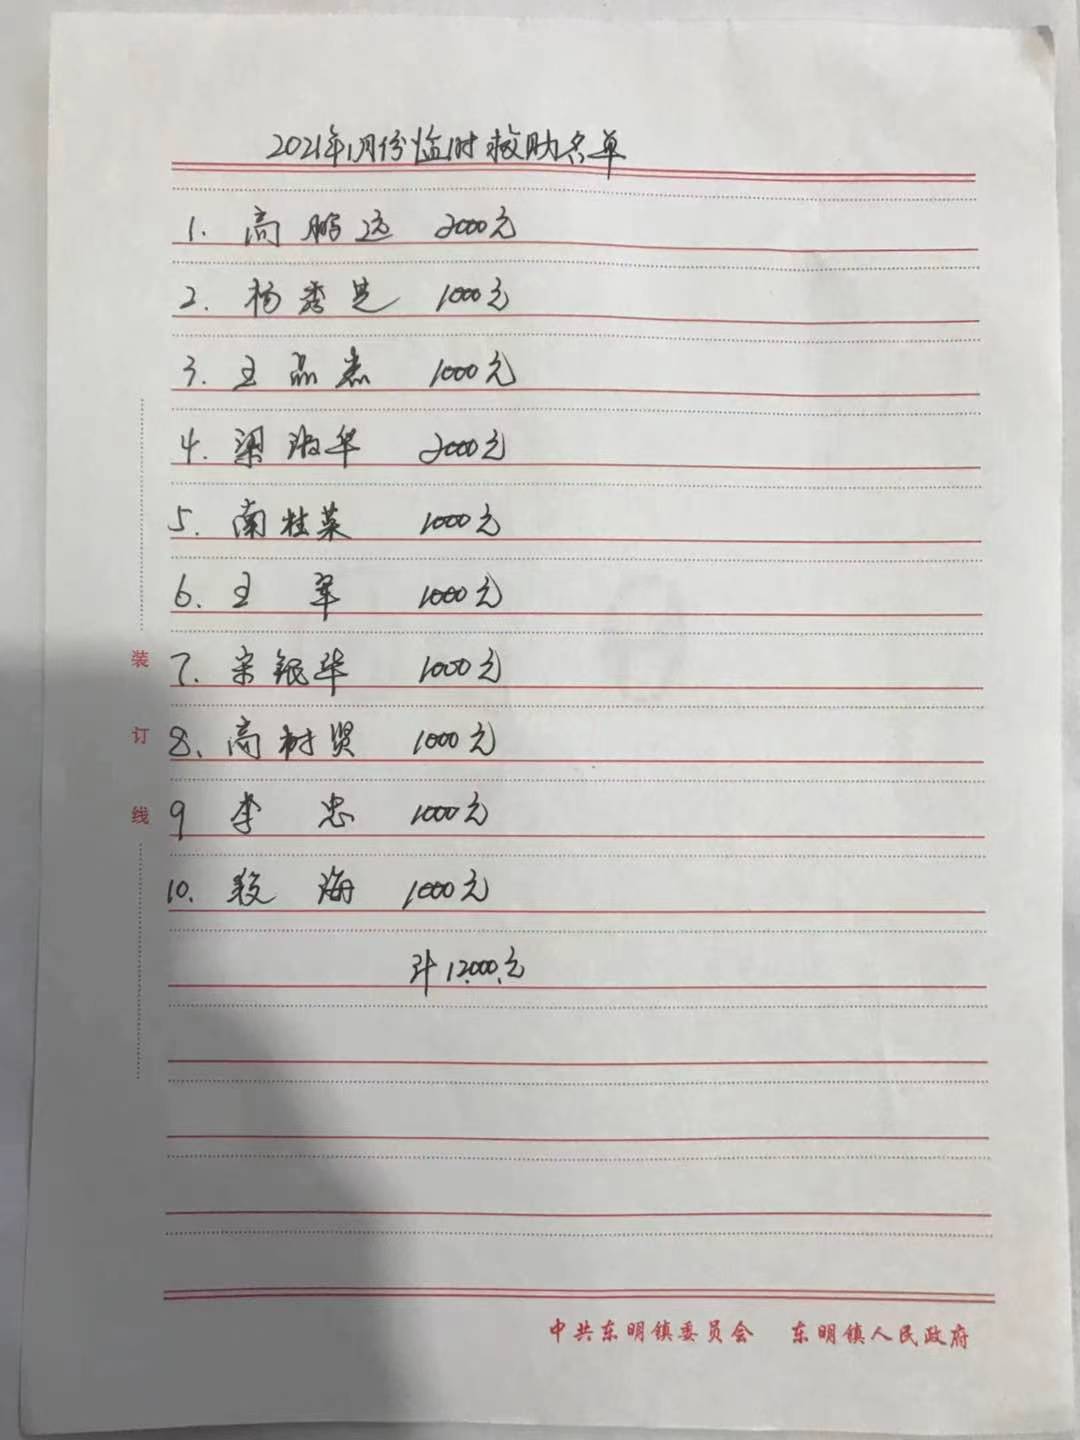 2021年1月份临时救助名单
1. 高鹏远 2000元
2. 杨秀 1000元
3. 王品杰 1000元
4. 梁淑华 2000元
5. 南桂菜 1000元
6. 王军 1000元
7. 宋银华 1000元
8、高树贤 1000元
9 李忠 1000元
10. 段海 1000元
计12000元
装订线
中共东明镇委员会 东明镇人民政府